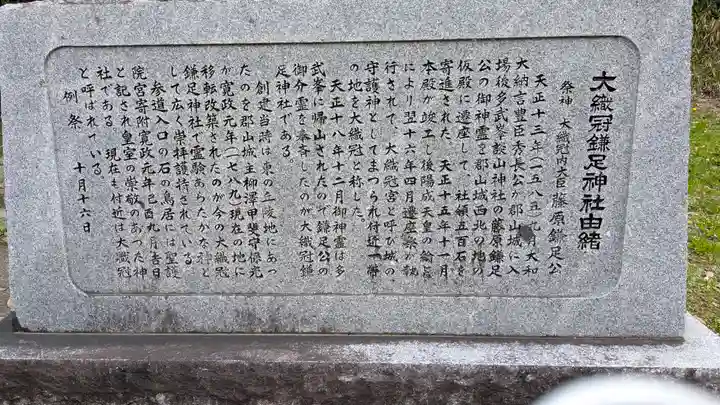 大織冠鎌足神社由緒
祭神 大織冠内大臣藤原鎌足公
天正十三年(一五八五)九月大和
大納言豊臣秀長公が郡山城に入
場後多武峯談山神社の藤原鎌足
公の御神霊を郡山城西北の地の
仮殿に遷座して、社領五百石を
寄進された 天正十五年十一月
本殿が竣工し後陽成天皇の綸旨
により翌十六年四月遷座祭が執
行されて、大織冠宮と呼び城の、
守護神としてまつられ付近一帯
の地を大織冠と称した。
天正十八年十二月御神霊は多
武峯に帰山されたので鎌足公の
御分霊を奉斎したのが大織冠鎌
足神社である。
創建当時は東の丘陵地にあっ
たのを郡山城主柳澤甲斐守保光
が寛政元年(一七八九)現在の地に
移転改築されたのが今の大織冠
鎌足神社で霊験あらたかな神と
して広く崇拝護持されている。
参道入口の石の鳥居には聖護
院宮寄附寛政元年己酉九月吉日
と記され皇室の崇敬のあつた神
社である 現在も付近は大織冠
と呼ばれている。
例祭 十月十六日